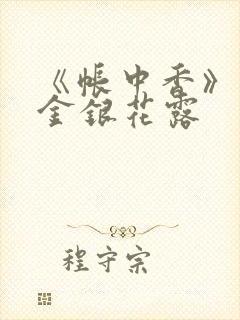 《帐中香》
金银花露
程守宗